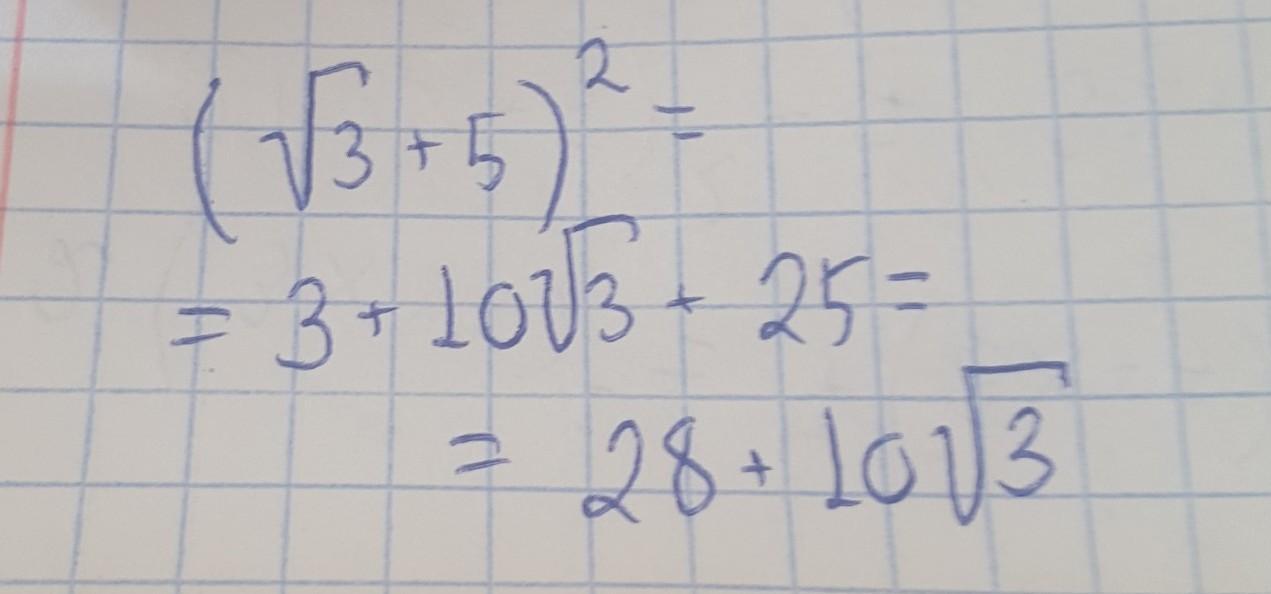 (√3 + 5)² =
= 3 + 10√3 + 25 =
= 28 + 10√3